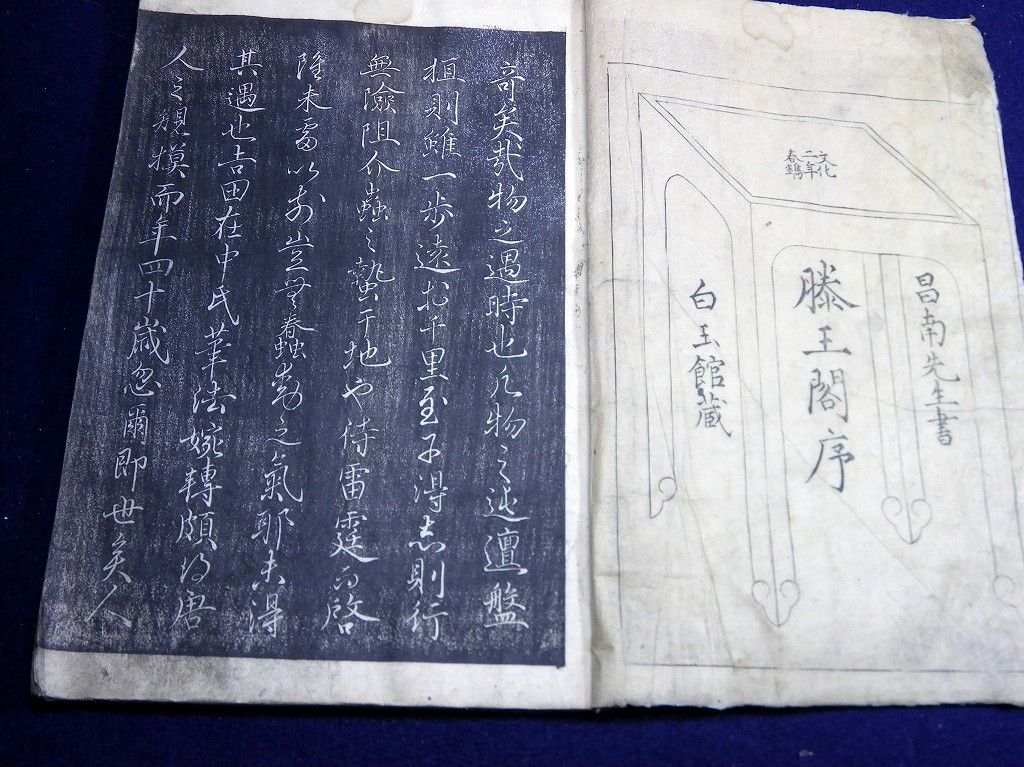 文化
二年
春鐫
昌南先生書
滕王閣序
白玉館蔵
奇矣哉物之遇時也凡物之迍邅盤
桓則雖一歩遠於千里至于得志則行
無險阻介蟲之蟄于地也待雷霆而啓
隆未雷以前豈無蠢動之氣耶未得
其遇也吉田在中氏筆法婉轉頗得唐
人之規摸而年四十歳忽爾即世矣人